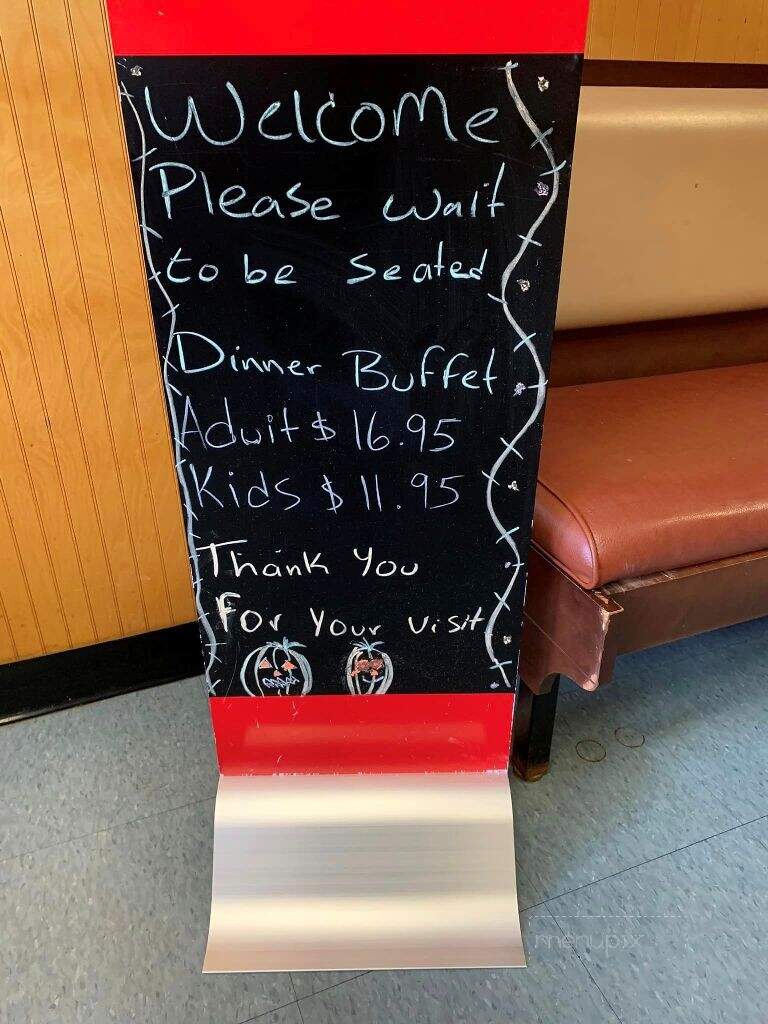 Welcome
Please wait
to be seated
Dinner Buffet
Aduit $ 16.95
Kids $ 11.95
Thank You
For Your visit
menupix